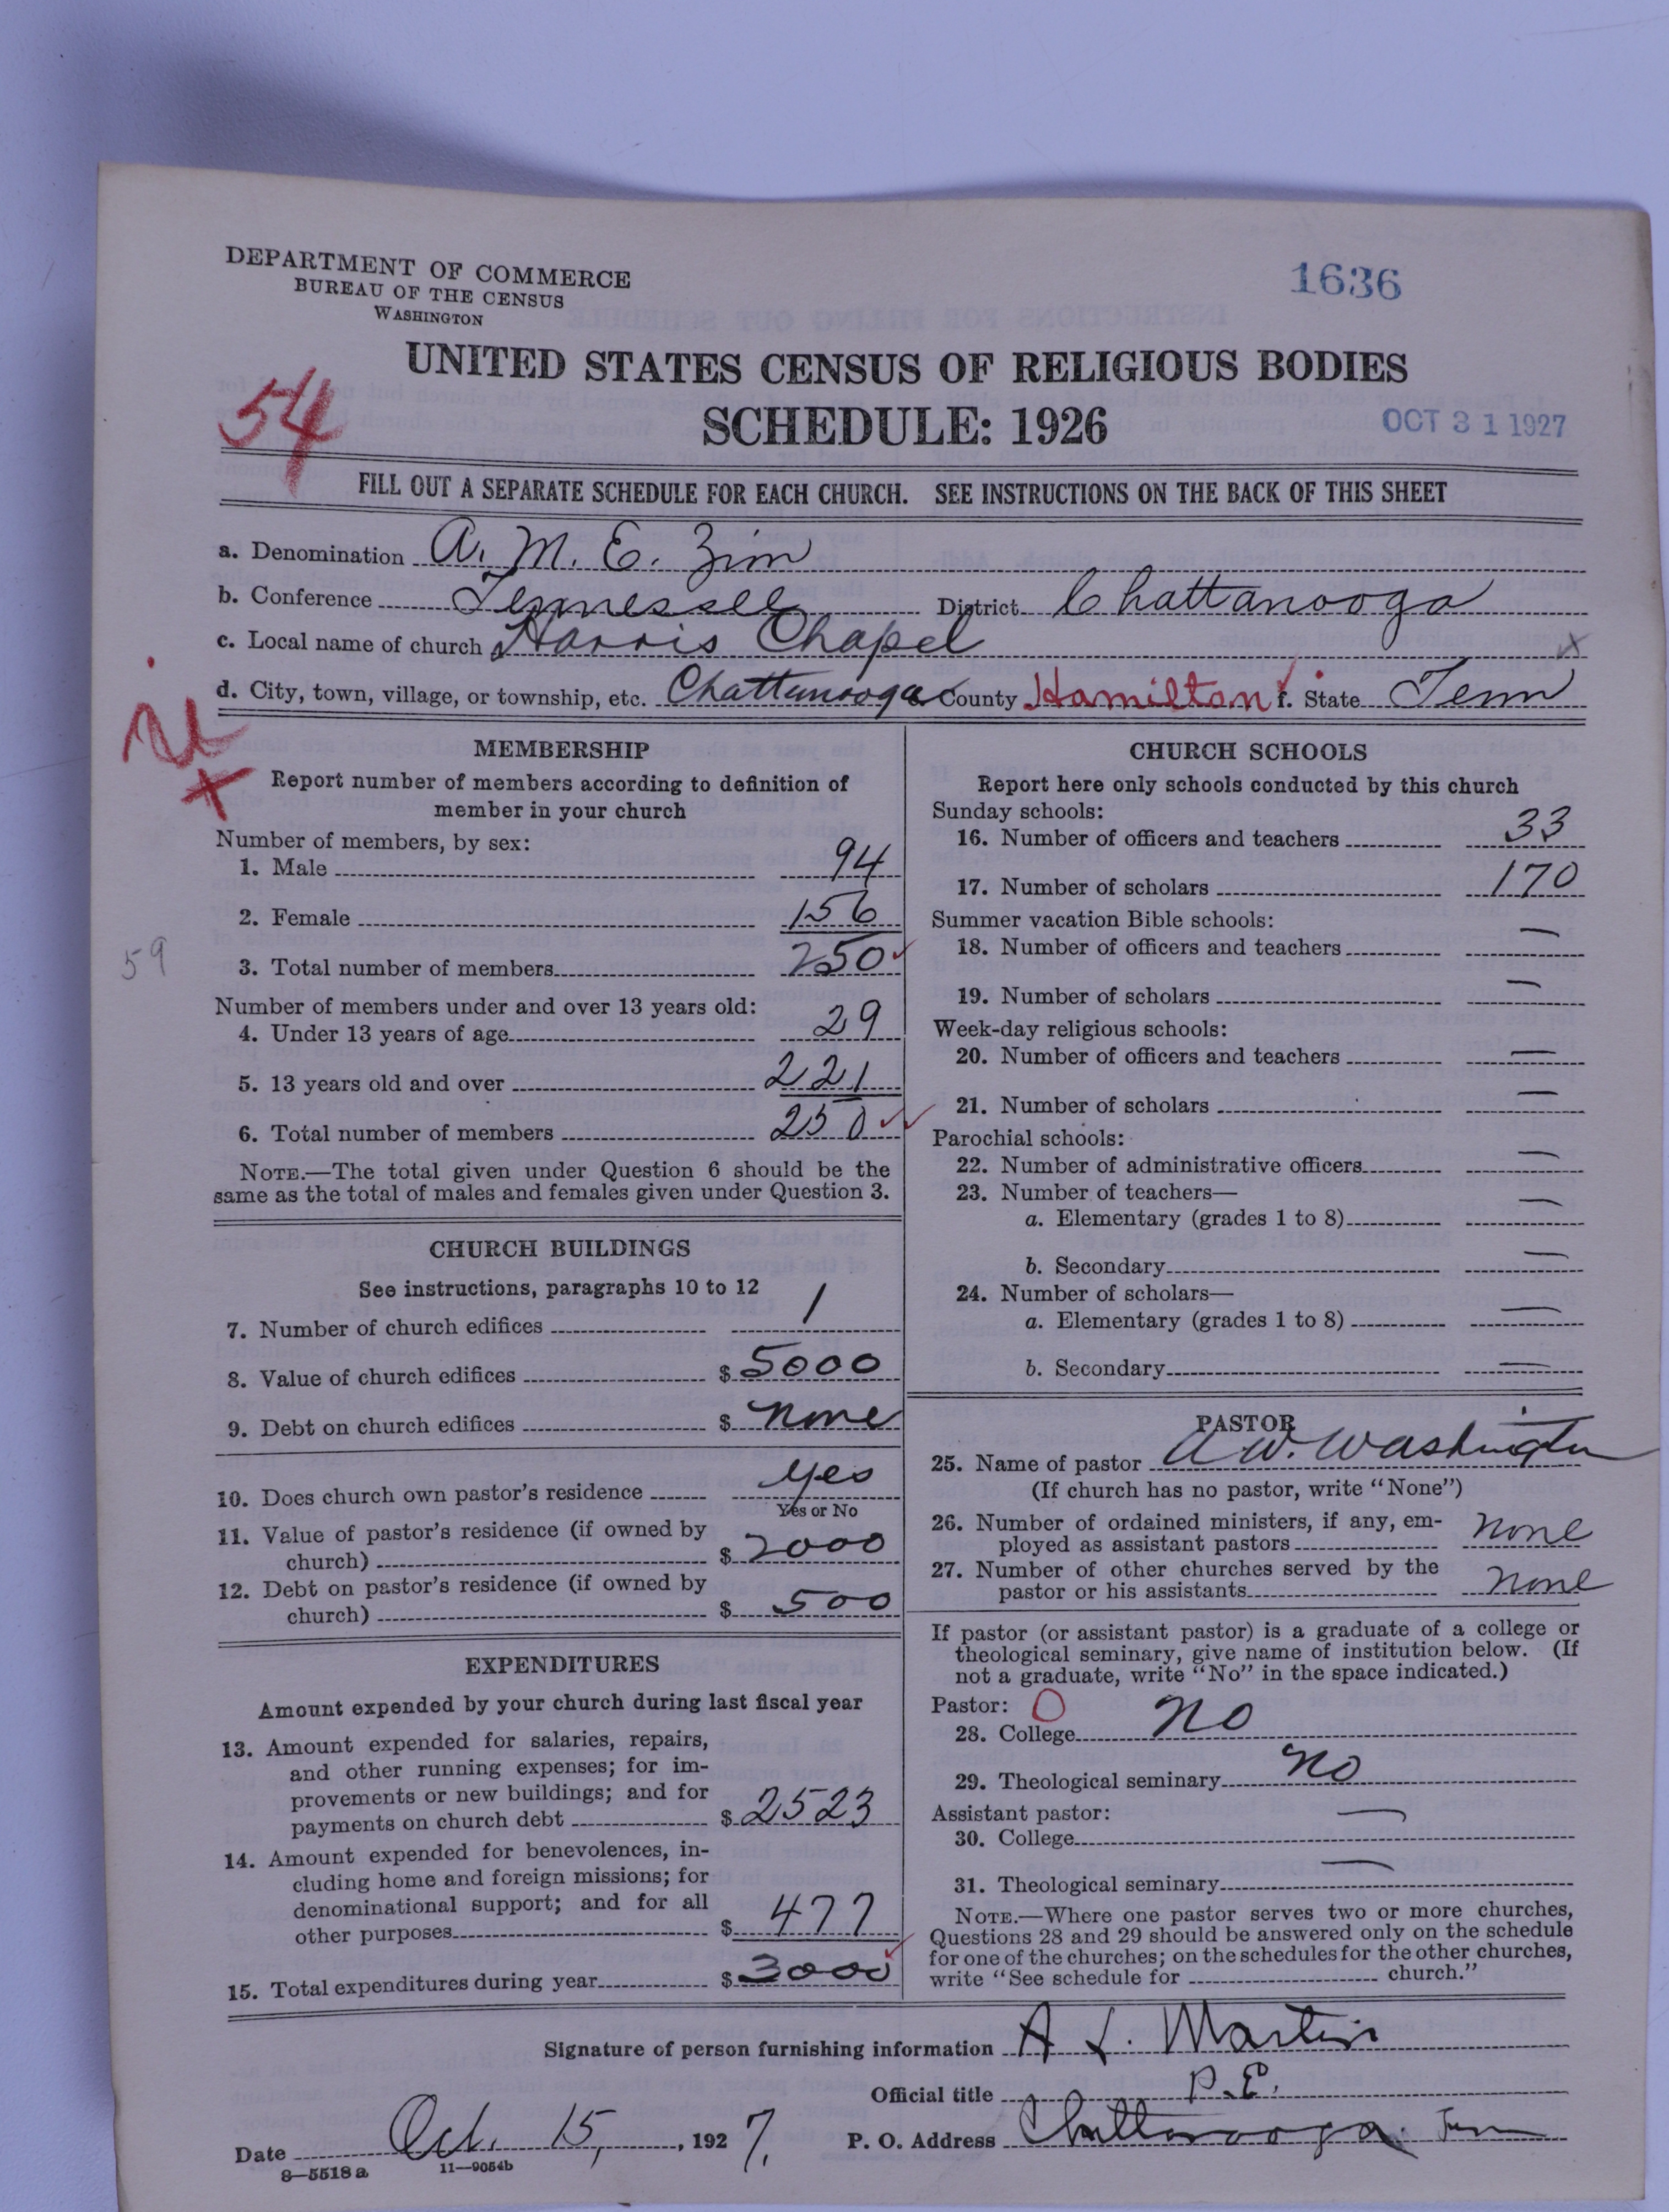 DEPARTMENT OF COMMERCE
BUREAU OF THE CENSUS
WASHINGTON
1636
UNITED STATES CENSUS OF RELIGIOUS BODIES
SCHEDULE: 1926
OCT 31 1927
54
FILL OUT A SEPARATE SCHEDULE FOR EACH CHURCH. SEE INSTRUCTIONS ON THE BACK OF THIS SHEET
a. Denomination A. M. E. Zion
b. Conference Tennessee District Chattanooga
c. Local name of church Harris Chapel x
d. City, town, village, or township, etc. Chattanooga e. County Hamilton f. State Tenn
MEMBERSHIP
Report number of members according to definition of
member in your church
Number of members, by sex:
1. Male 94
2. Female 156
59
3. Total number of members 250
Number of members under and over 13 years old:
4. Under 13 years of age 29
5. 13 years old and over 221
6. Total number of members 250
NOTE.—The total given under Question 6 should be the
same as the total of males and females given under Question 3.
CHURCH BUILDINGS
See instructions, paragraphs 10 to 12
7. Number of church edifices 1
8. Value of church edifices $ 5000
9. Debt on church edifices $ none
10. Does church own pastor's residence yes
Yes or No
11. Value of pastor's residence (if owned by
church) $ 2000
12. Debt on pastor's residence (if owned by
church) $ 500
EXPENDITURES
Amount expended by your church during last fiscal year
13. Amount expended for salaries, repairs,
and other running expenses; for im-
provements or new buildings; and for
payments on church debt $ 2523
14. Amount expended for benevolences, in-
cluding home and foreign missions; for
denominational support; and for all
other purposes $ 477
15. Total expenditures during year $ 3000
CHURCH SCHOOLS
Report here only schools conducted by this church
Sunday schools:
16. Number of officers and teachers 33
17. Number of scholars 170
Summer vacation Bible schools:
18. Number of officers and teachers —
19. Number of scholars —
Week-day religious schools:
20. Number of officers and teachers —
21. Number of scholars —
Parochial schools:
22. Number of administrative officers —
23. Number of teachers—
a. Elementary (grades 1 to 8) —
b. Secondary —
24. Number of scholars—
a. Elementary (grades 1 to 8) —
b. Secondary —
PASTOR
25. Name of pastor A W. Washington
(If church has no pastor, write "None")
26. Number of ordained ministers, if any, em-
ployed as assistant pastors none
27. Number of other churches served by the
pastor or his assistants none
If pastor (or assistant pastor) is a graduate of a college or
theological seminary, give name of institution below. (If
not a graduate, write "No" in the space indicated.)
Pastor: O
28. College no
29. Theological seminary no
Assistant pastor:
30. College —
31. Theological seminary —
NOTE.—Where one pastor serves two or more churches,
Questions 28 and 29 should be answered only on the schedule
for one of the churches; on the schedules for the other churches,
write "See schedule for church."
Signature of person furnishing information A L. Martin
Official title P. E.
Date Oct. 15, 1927. P. O. Address Chattanooga Tenn
8—5518 a 11—9054b